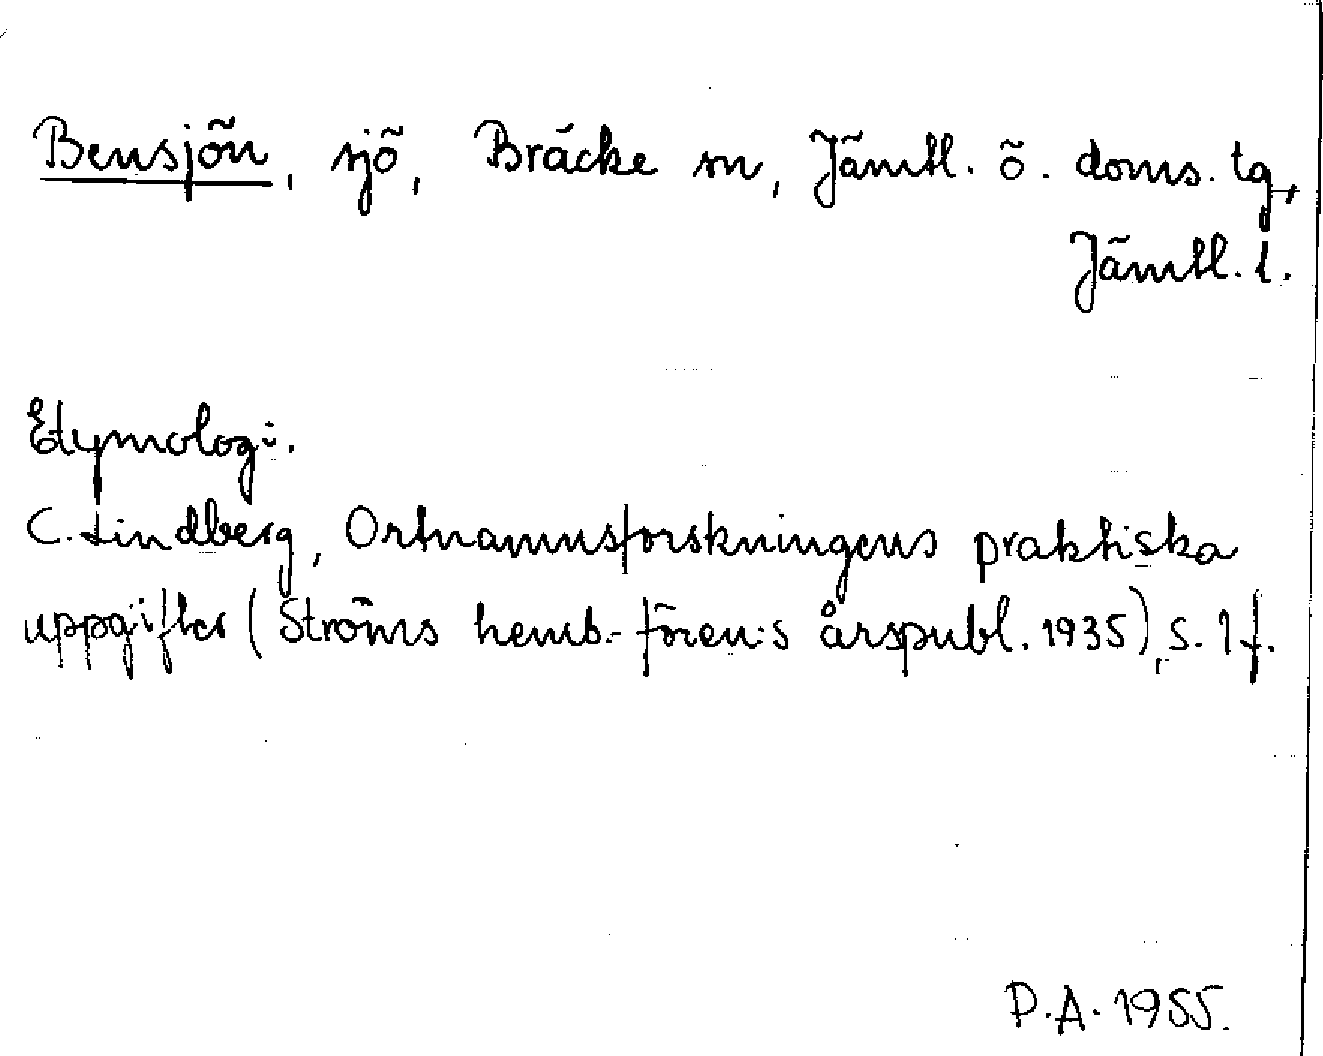 Bensjön, sjö, Bräcke sn, Jämtl. ö. doms. tg,
Jämtl. l.
Etymologi.
C. Lindberg, Ortnamnsforskningens praktiska
uppgifter (Ströms hemb.-fören:s årspubl. 1935), s. 1 f.
P.A. 1955.